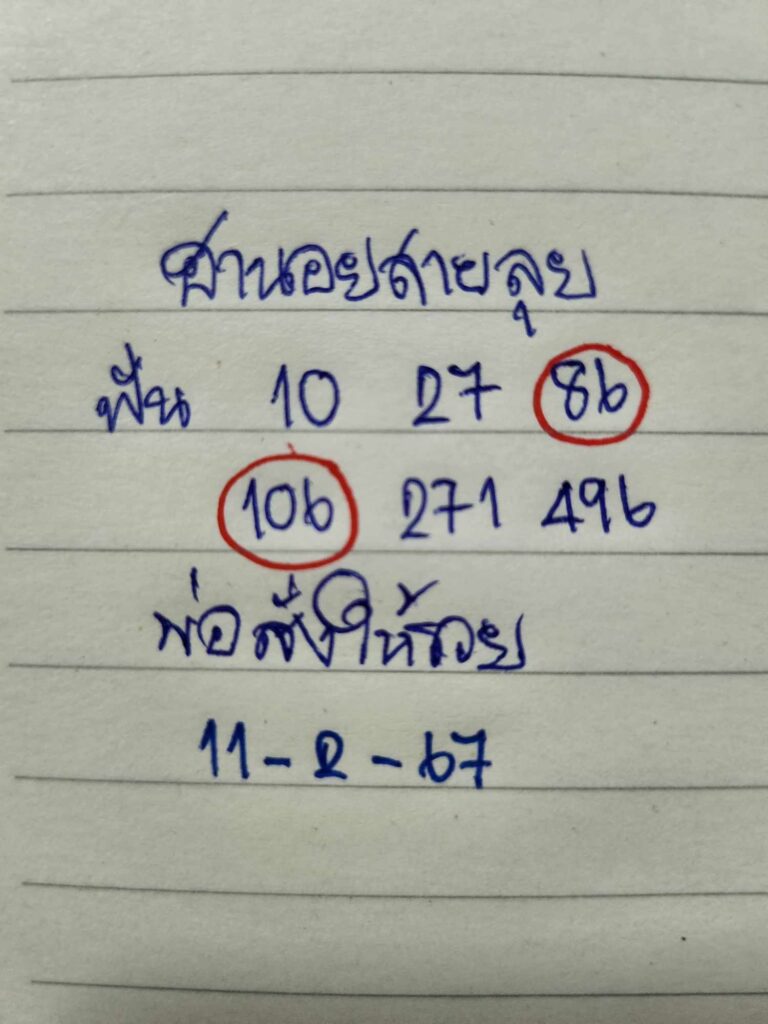 ฮานอยสายลุย
ฟัน 10 27 86
106 271 496
พ่อสั่งให้รวย
11-2-67